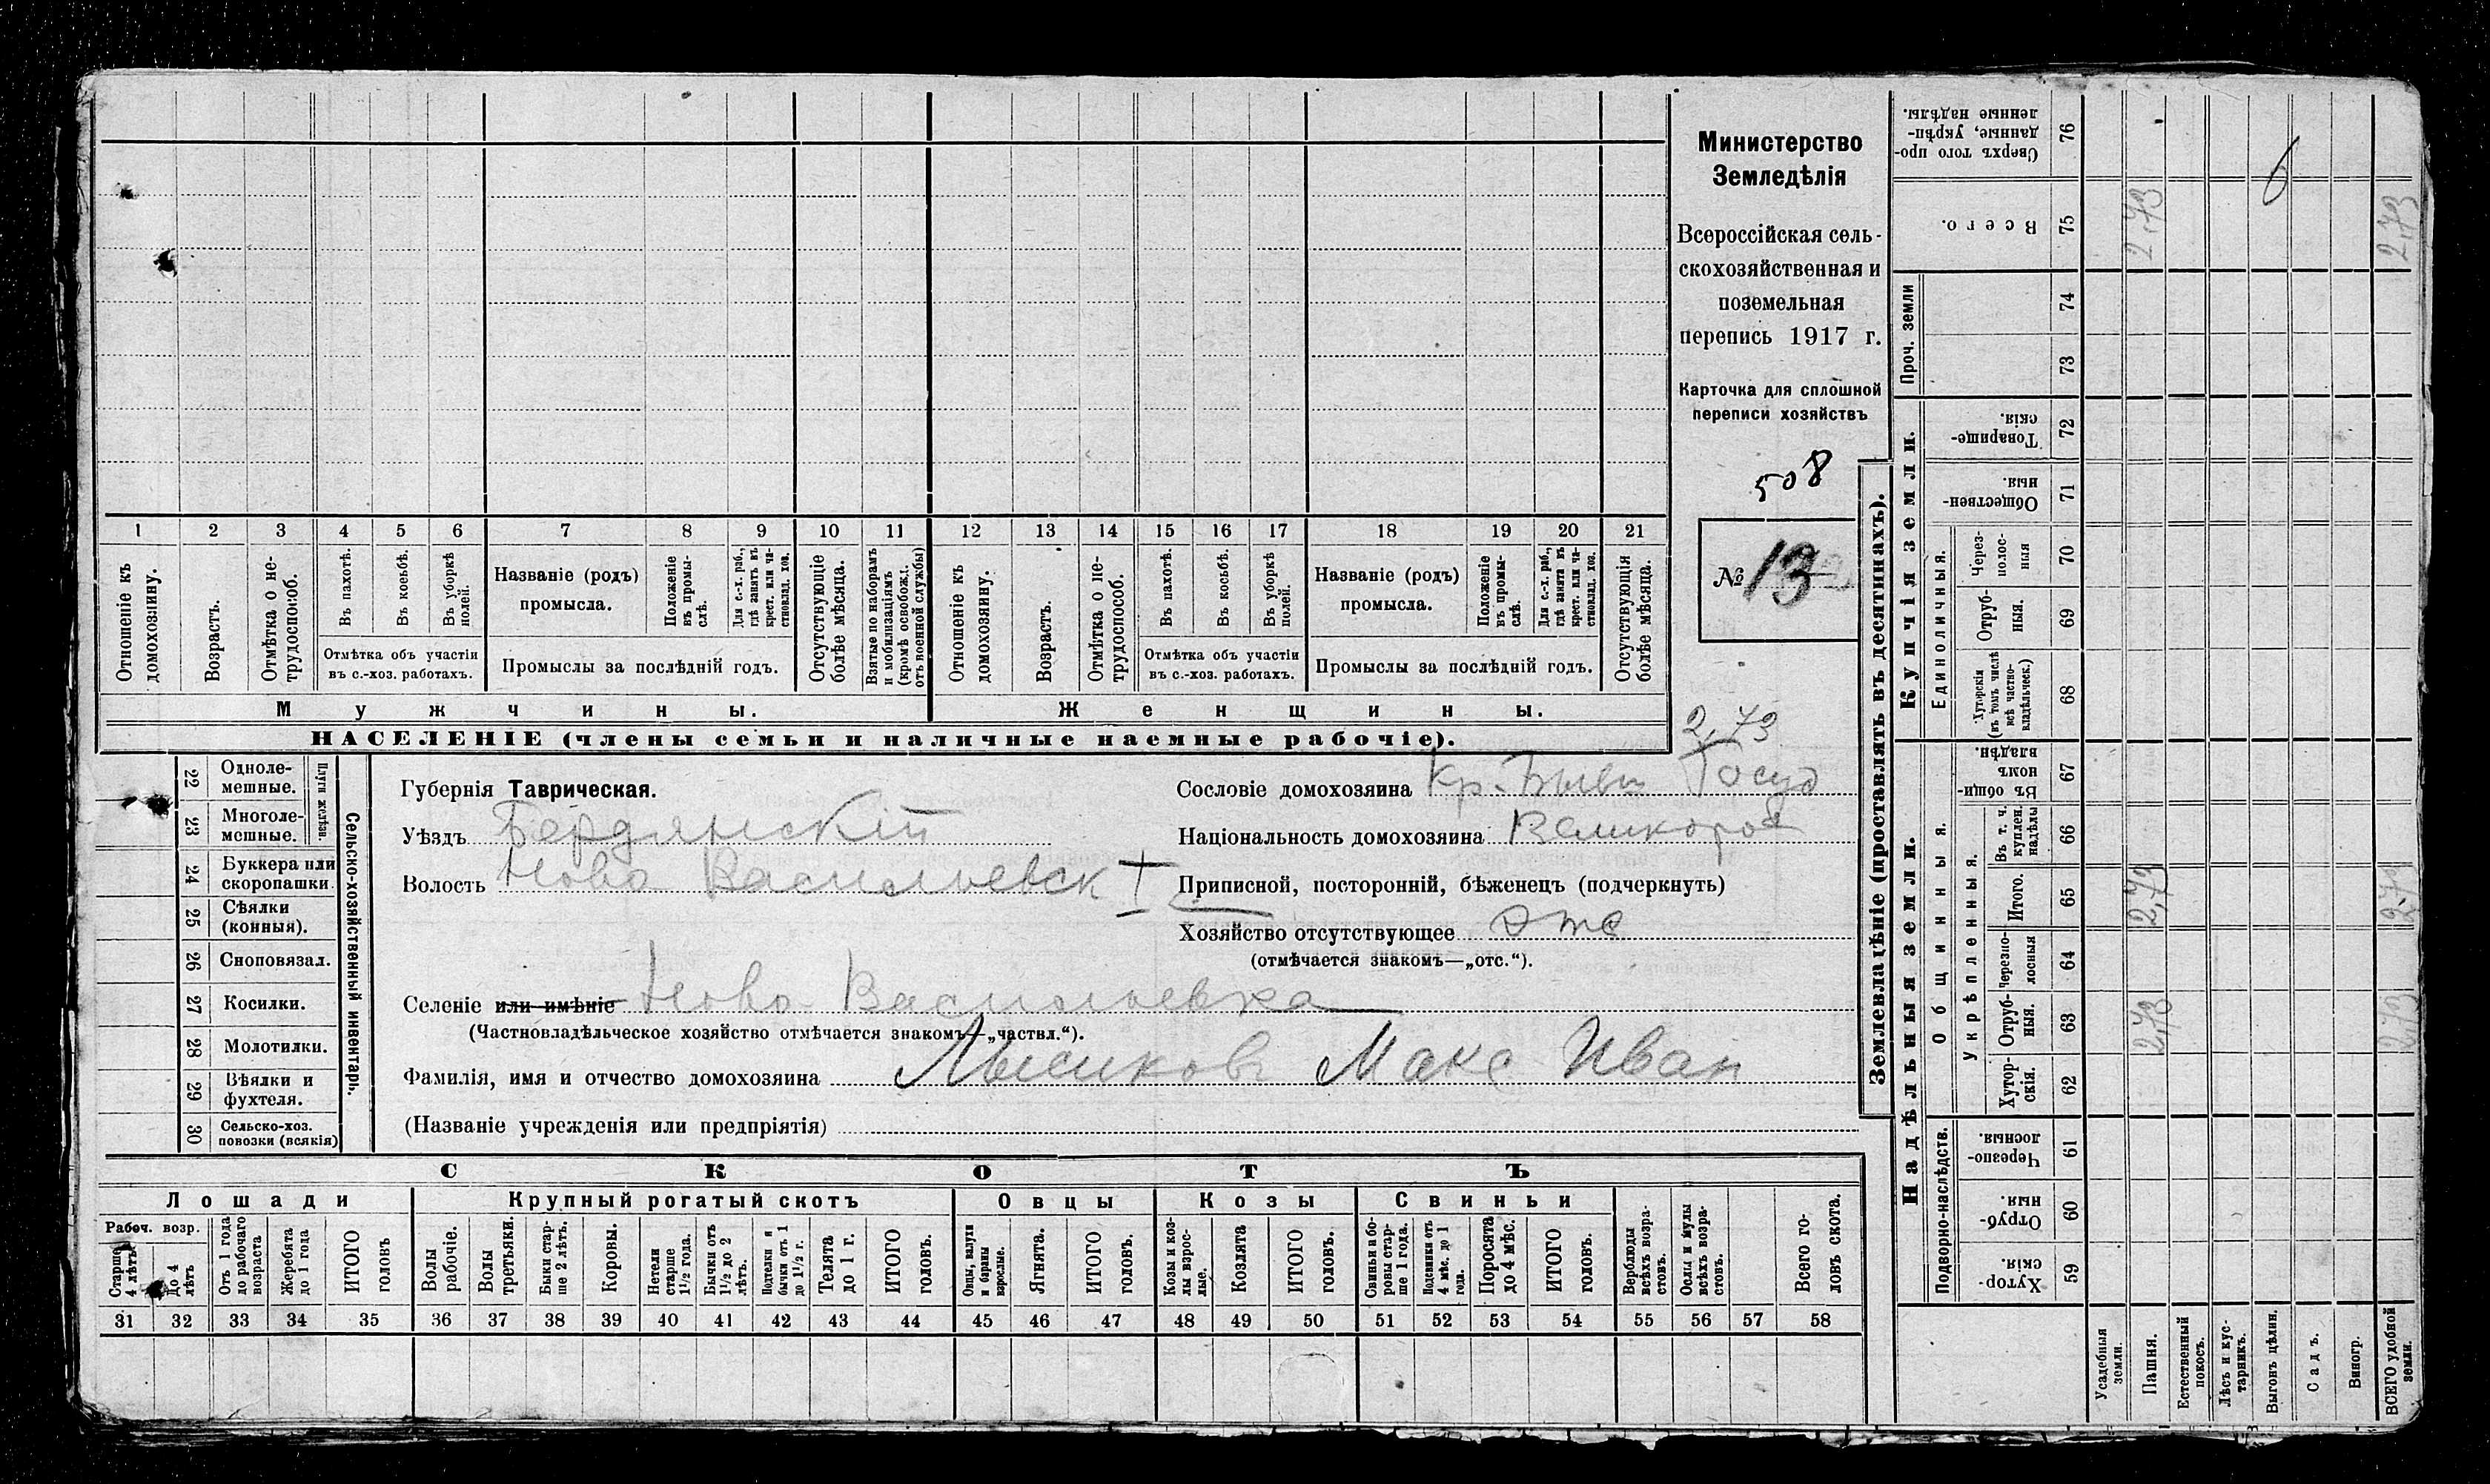 1 2 3 4 5 6 7 8 9 10 11 12 13 14 15 16 17 18 19 20 21
Отношеніе къ домохозяину.
Возрастъ.
Отмѣтка о не-
трудоспособ.
Въ пахотѣ.
Въ косьбѣ.
Въ уборкѣ
полей.
Отмѣтка объ участіи
въ с.-хоз. работахъ.
Названіе (родъ)
промысла.
Положеніе
въ промы-
слѣ.
Для с.-х. раб.,
гдѣ занятъ въ
крест. или ча-
стновлад. хоз.
Промыслы за послѣдній годъ.
Отсутствующіе
болѣе мѣсяца.
Взятые по наборамъ
и мобилизаціямъ
(кромѣ освобожд.
отъ военной службы)
Отношеніе къ
домохозяину.
Возрастъ.
Отмѣтка о не-
трудоспособ.
Въ пахотѣ.
Въ косьбѣ.
Въ уборкѣ
полей.
Отмѣтка объ участіи
въ с.-хоз. работахъ.
Названіе (родъ)
промысла.
Положеніе
въ промы-
слѣ.
Для с.-х. раб.,
гдѣ занята въ
крест. или ча-
стновлад. хоз.
Промыслы за послѣдній годъ.
Отсутствующія
болѣе мѣсяца.
Мужчины.
Женщины.
НАСЕЛЕНІЕ (члены семьи и наличные наемные рабочіе).
Министерство
Земледѣлія
Всероссійская сель-
скохозяйственная и
поземельная
перепись 1917 г.
Карточка для сплошной
переписи хозяйствъ
508
№ 13
2,73
22 Одноле-
мешные.
23 Многоле-
мешные.
Плуги желѣзн.
24 Буккера или
скоропашки.
25 Сѣялки
(конныя).
26 Сноповязал.
27 Косилки.
28 Молотилки.
29 Вѣялки и
фухтеля.
30 Сельско-хоз.
повозки (всякія)
Сельско-хозяйственный инвентарь.
Губернія Таврическая.
Уѣздъ Бердянскій
Волость Ново Васильевск
Селеніе или имѣніе Ново Васильевка
(Частновладѣльческое хозяйство отмѣчается знакомъ—„частвл.“).
Фамилія, имя и отчество домохозяина Лысиковъ Макс Иван
(Названіе учрежденія или предпріятія)
Сословіе домохозяина Кр. бывш Госуд
Національность домохозяина Великорос
Приписной, посторонній, бѣженецъ (подчеркнуть)
Хозяйство отсутствующее отс
(отмѣчается знакомъ—„отс.“).
СКОТЪ
Лошади
Крупный рогатый скотъ
Овцы
Козы
Свиньи
Рабоч. возр.
Старше
4 лѣтъ
До 4
лѣтъ
Отъ 1 года
до рабочаго
возраста
Жеребята
до 1 года
ИТОГО
головъ
Волы
рабочіе.
Волы
третьяки.
Быки стар-
ше 2 лѣтъ.
Коровы.
Нетели
старше
1½ года.
Бычки отъ
1½ до 2
лѣтъ.
Подтелки и
бычки отъ 1
до 1½ г.
Телята
до 1 г.
ИТОГО
головъ.
Овцы, валухи
и бараны
взрослые.
Ягнята.
ИТОГО
головъ.
Козы и коз-
лы взрос-
лые.
Козлята
ИТОГО
головъ.
Свиньи а бо-
ровы стар-
ше 1 года.
Подсвинки отъ
4 мѣс. до 1
года.
Поросята
до 4 мѣс.
ИТОГО
головъ.
Верблюды
всѣхъ возра-
стовъ.
Ослы и мулы
всѣхъ возра-
стовъ.
Всего го-
ловъ скота.
31 32 33 34 35 36 37 38 39 40 41 42 43 44 45 46 47 48 49 50 51 52 53 54 55 56 57 58
Землевладѣніе (проставлять въ десятинахъ).
Надѣльныя земли.
Купчія земли.
Проч. земли
Подворно-наслѣдств.
Общинныя.
Укрѣпленныя.
Единоличныя.
Сверхъ того про-
данные, укрѣп-
ленные надѣлы.
76
Всего.
75
2,73
2,73
6
74
73
Товарище-
скія.
72
Обществен-
ныя.
71
Через-
полос-
ныя
70
Отруб-
ныя.
69
Хуторскія
(въ томъ числѣ
всѣ частно-
владѣльческ.)
68
Въ общи-
номъ
владѣн.
67
Въ т. ч.
куплен.
надѣлы
66
Итого.
65
2,73
2,73
Черезпо-
лосныя
64
Отруб-
ныя.
63
2,73
2,73
Хутор-
скія.
62
Черезпо-
лосныя.
61
Отруб-
ныя.
60
Хутор-
скія.
59
Усадебныя
земли.
Пашня.
Естественный
покосъ.
Лѣсъ и кус-
тарникъ.
Выгонъ цѣлин.
Садъ.
Виногр.
ВСЕГО удобной
земли.